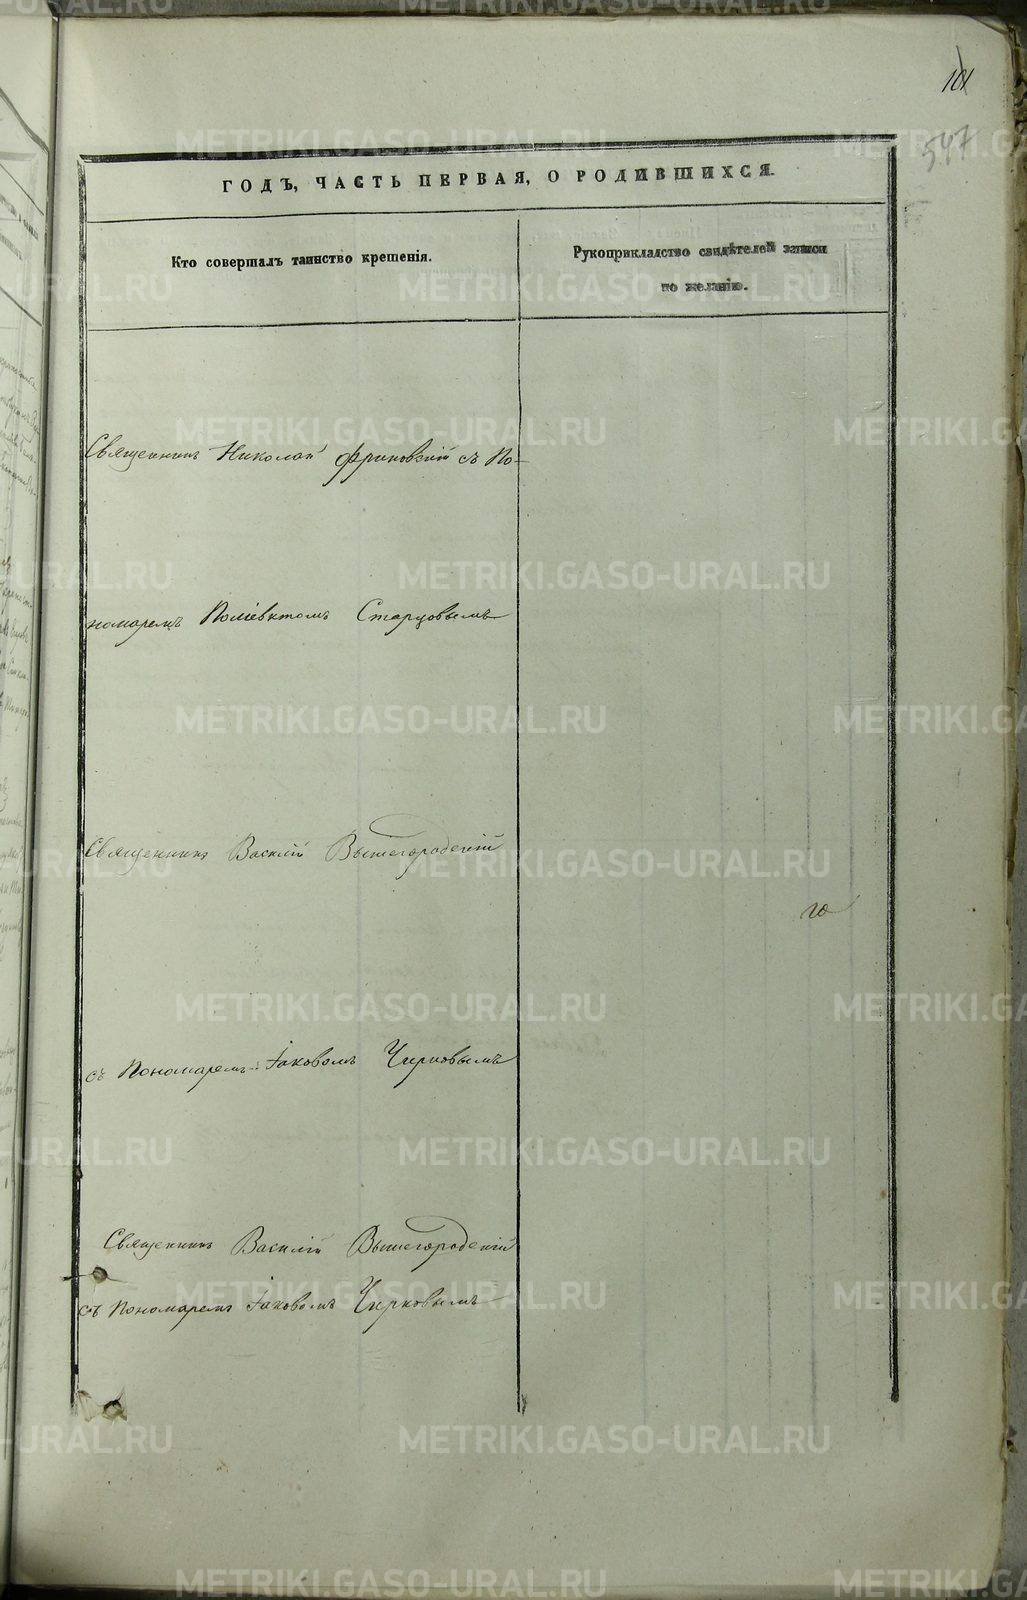 101
547
ГОДЪ, ЧАСТЬ ПЕРВАЯ, О РОДИВШИХСЯ.
Кто совершалъ таинство крещенія.
Рукоприкладство свидѣтелей записи
по желанію.
Священникъ Николай Фриновскій съ По-
номаремъ Поліевктомъ Старцовымъ
Священникъ Василій Вышегородскій
съ Пономаремъ Іаковомъ Чирковымъ
Священникъ Василій Вышегородскій
съ Пономаремъ Іаковомъ Чирковымъ
METRIKI.GASO-URAL.RU